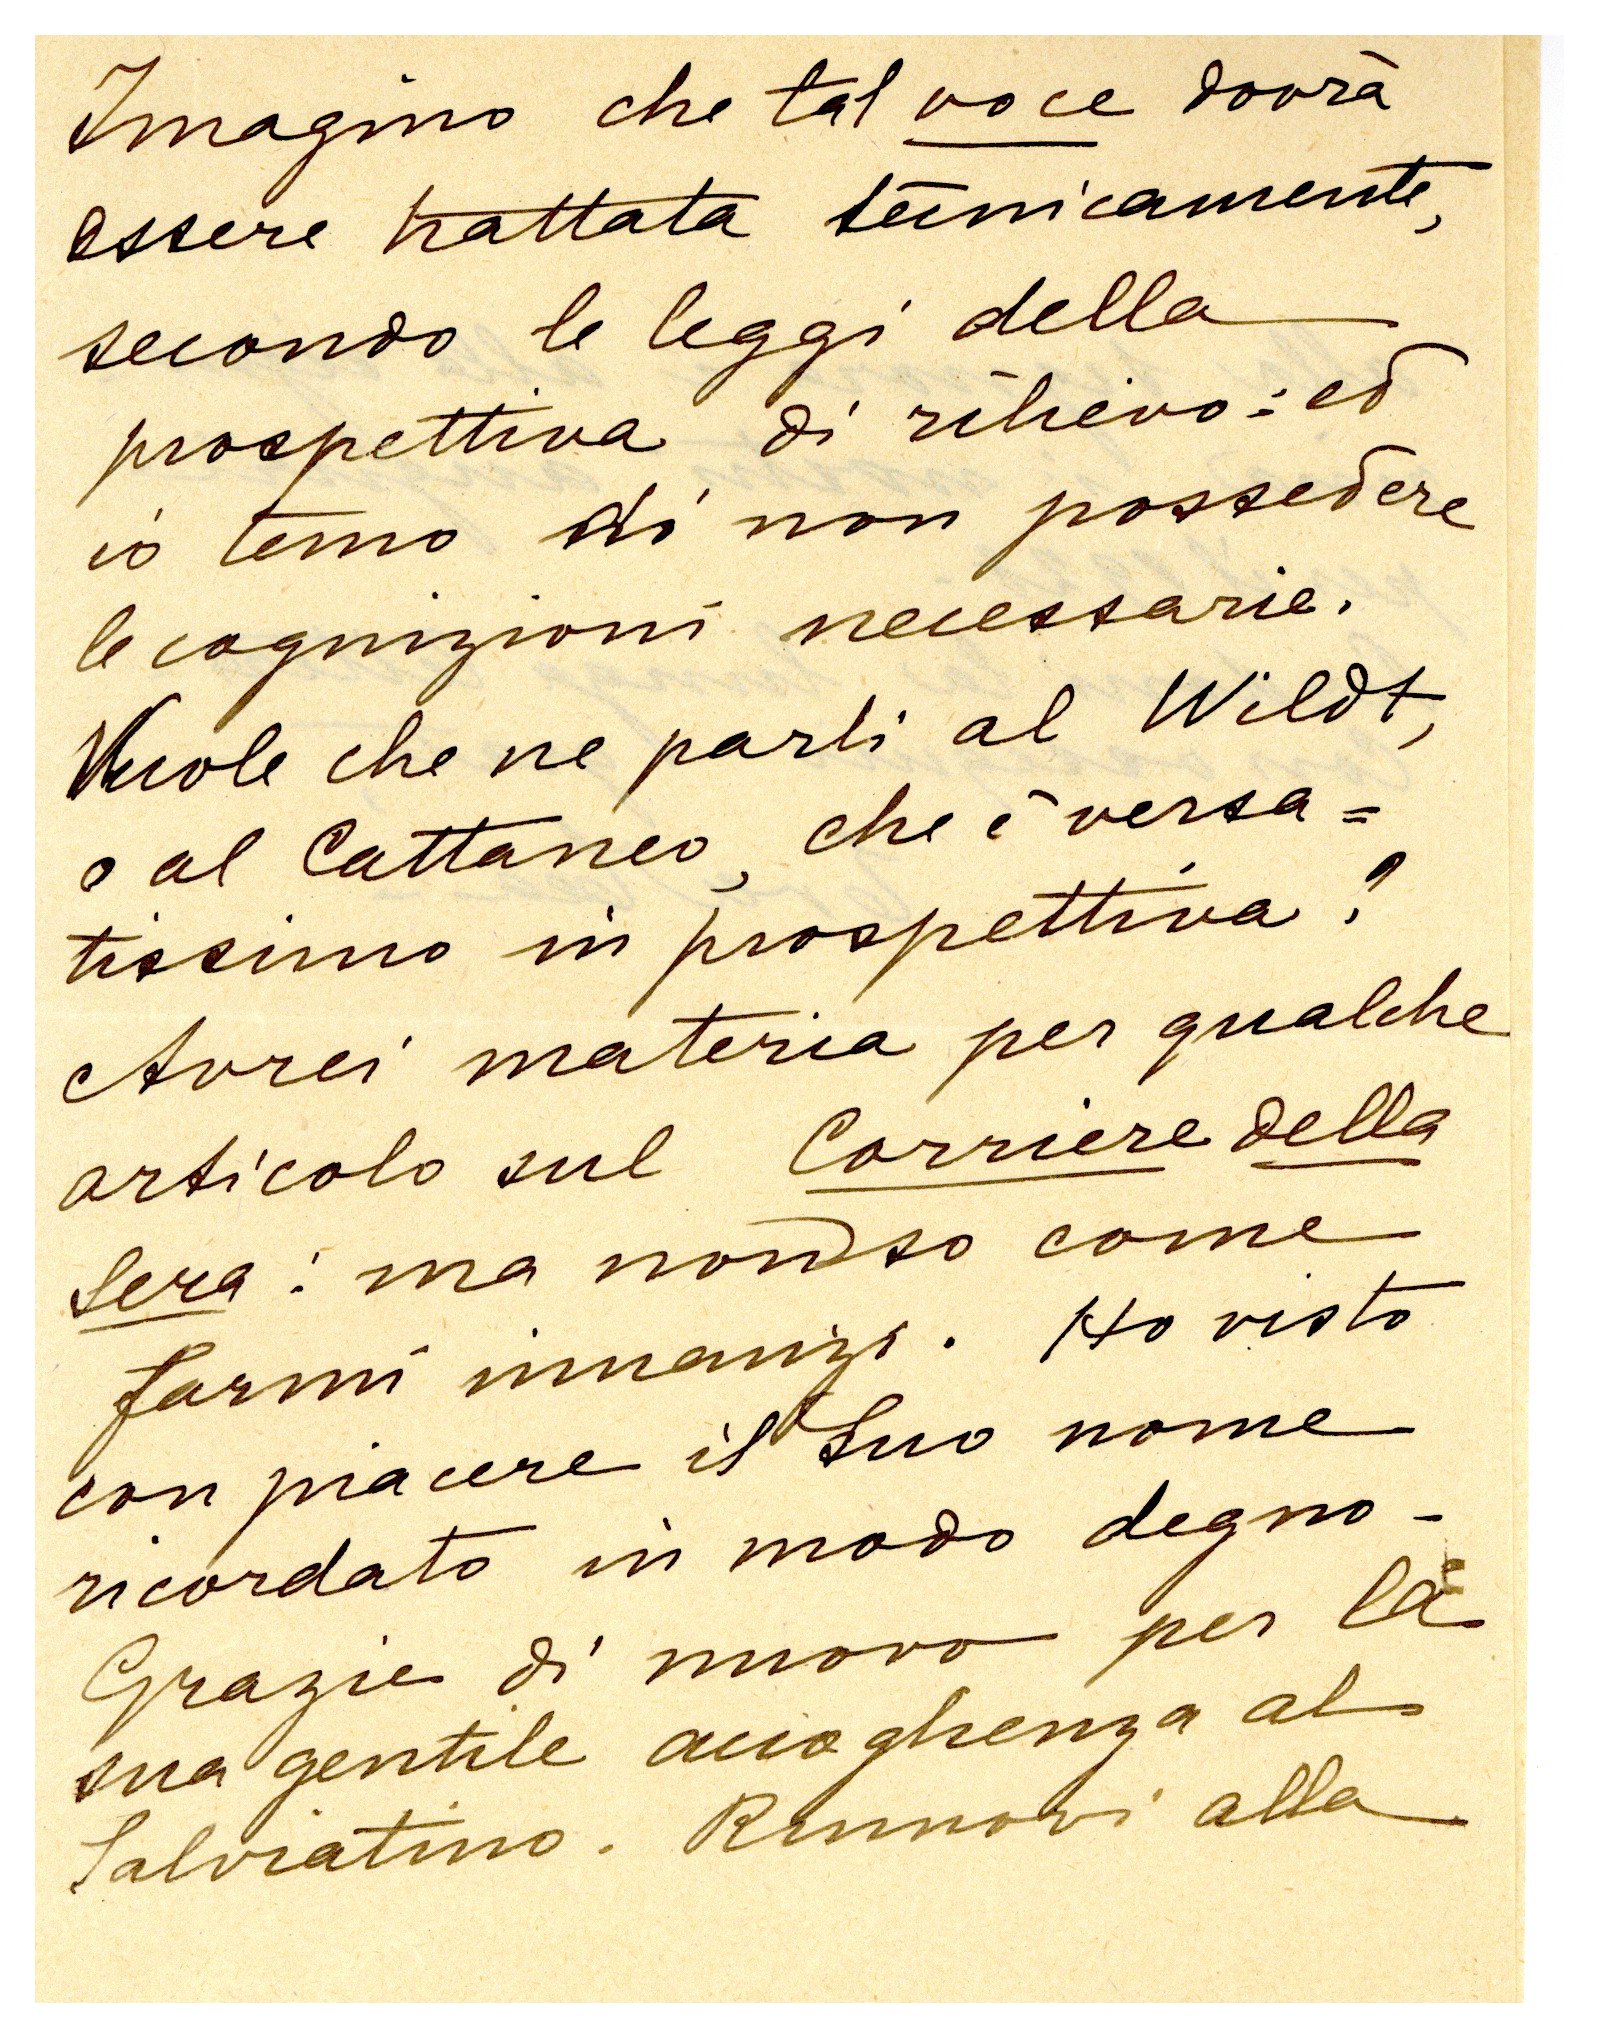 Imagino che tal voce dovrà
essere trattata tecnicamente,
secondo le leggi della
prospettiva di rilievo: ed
io temo di non possedere
le cognizioni necessarie.
Vuole che ne parli al Wildt,
o al Cattaneo, che è versa=
tissimo in prospettiva?
Avrei materia per qualche
articolo sul Corriere della
Sera: ma non so come
farmi innanzi. Ho visto
con piacere il Suo nome
ricordato in modo degno -
Grazie di nuovo per la
sua gentile accoglienza al
Salviatino. Rinnovi alla